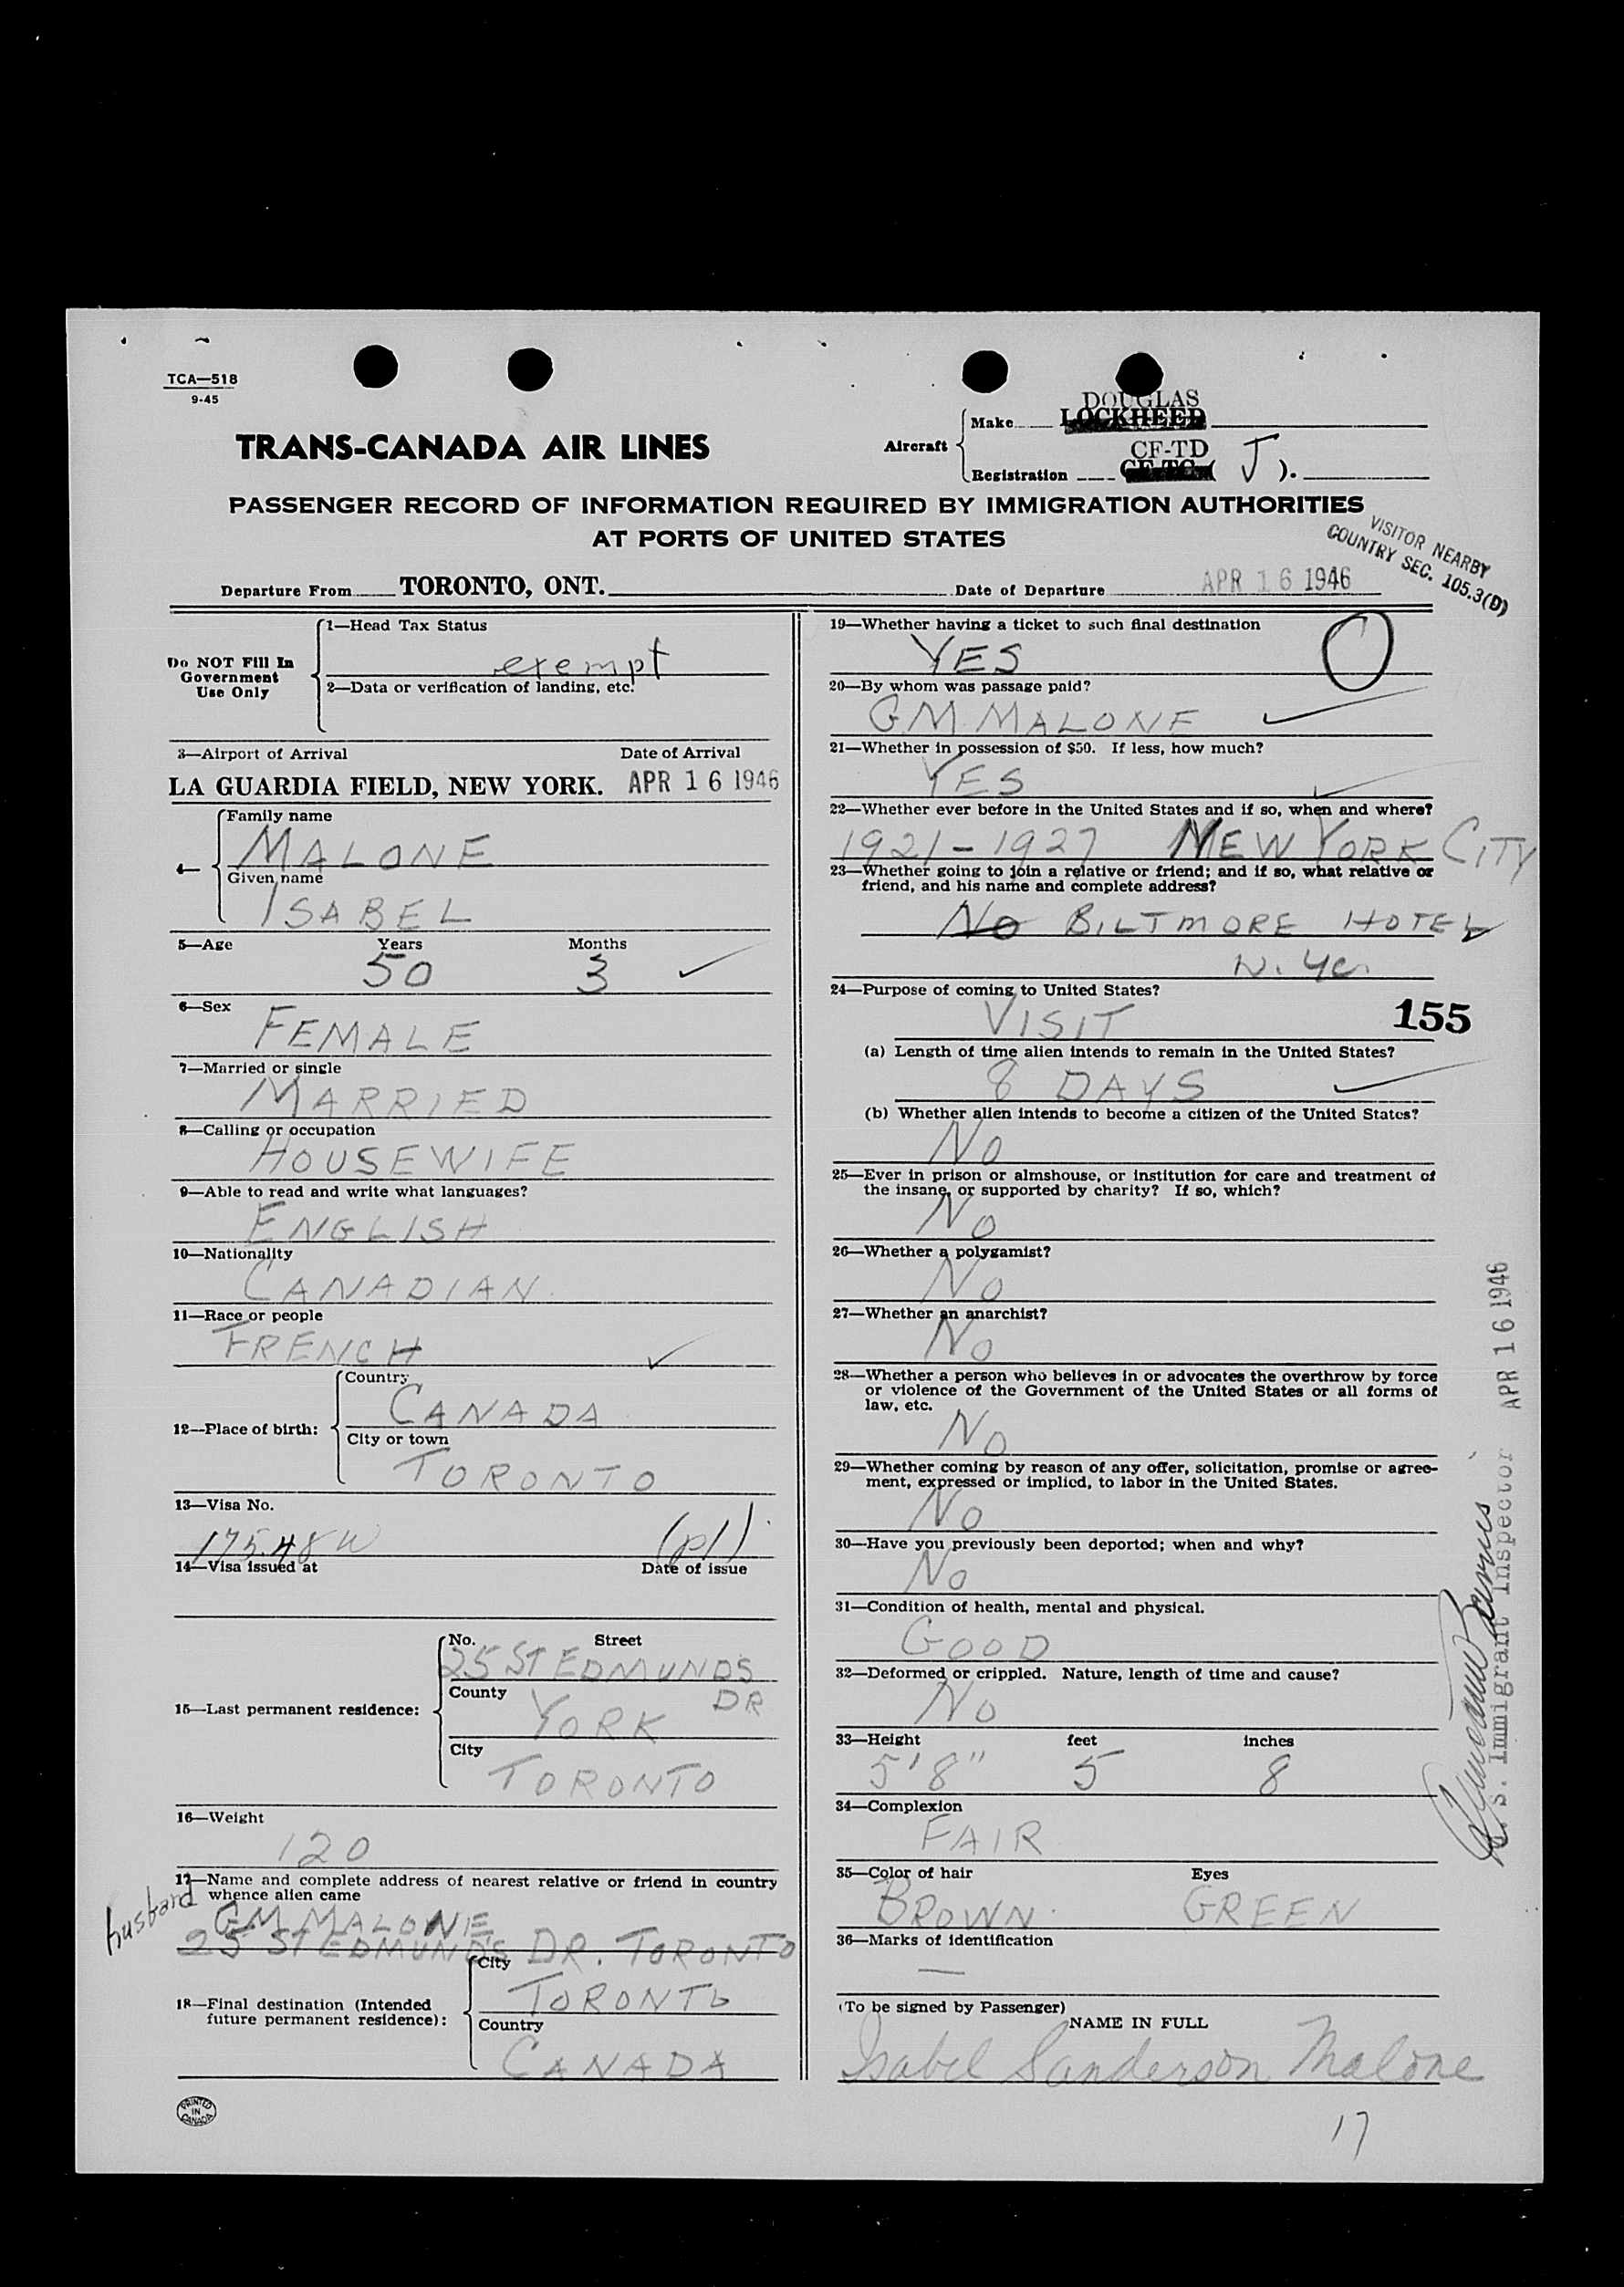 TCA—518
9-45
TRANS-CANADA AIR LINES
Aircraft
Make
DOUGLAS
LOCKHEED
Registration
CF-TD
CF-TC ( J ).
PASSENGER RECORD OF INFORMATION REQUIRED BY IMMIGRATION AUTHORITIES
AT PORTS OF UNITED STATES
VISITOR NEARBY
COUNTRY SEC. 105.3(D)
Departure From TORONTO, ONT.
Date of Departure APR 16 1946
Do NOT Fill In
Government
Use Only
1—Head Tax Status
exempt
2—Data or verification of landing, etc.
3—Airport of Arrival Date of Arrival
LA GUARDIA FIELD, NEW YORK. APR 16 1946
4—
Family name
MALONE
Given name
ISABEL
5—Age Years Months
50 3
6—Sex
FEMALE
7—Married or single
MARRIED
8—Calling or occupation
HOUSEWIFE
9—Able to read and write what languages?
ENGLISH
10—Nationality
CANADIAN.
11—Race or people
FRENCH
12—Place of birth:
Country
CANADA
City or town
TORONTO
13—Visa No.
175.48W (p1)
14—Visa issued at Date of issue
15—Last permanent residence:
No. Street
25 ST EDMUNDS
DR
County
YORK
City
TORONTO
16—Weight
120
17—Name and complete address of nearest relative or friend in country
whence alien came
husband
GM MALONE
25 ST EDMUND'S DR. TORONTO
18—Final destination (Intended
future permanent residence):
City
TORONTO
Country
CANADA
PRINTED
IN
CANADA
19—Whether having a ticket to such final destination
YES
0
20—By whom was passage paid?
G.M MALONE
21—Whether in possession of $50. If less, how much?
YES
22—Whether ever before in the United States and if so, when and where?
1921-1927 NEW YORK CITY
23—Whether going to join a relative or friend; and if so, what relative or
friend, and his name and complete address?
No BILTMORE HOTEL
N. Yc.
24—Purpose of coming to United States?
VISIT
155
(a) Length of time alien intends to remain in the United States?
8 DAYS
(b) Whether alien intends to become a citizen of the United States?
No
25—Ever in prison or almshouse, or institution for care and treatment of
the insane, or supported by charity? If so, which?
No
26—Whether a polygamist?
No
27—Whether an anarchist?
No
28—Whether a person who believes in or advocates the overthrow by force
or violence of the Government of the United States or all forms of
law, etc.
No
29—Whether coming by reason of any offer, solicitation, promise or agree-
ment, expressed or implied, to labor in the United States.
No
30—Have you previously been deported; when and why?
No
31—Condition of health, mental and physical.
GOOD
32—Deformed or crippled. Nature, length of time and cause?
No
33—Height feet inches
5'8" 5 8
34—Complexion
FAIR
35—Color of hair Eyes
BROWN. GREEN
36—Marks of identification
—
(To be signed by Passenger)
NAME IN FULL
Isabel Sanderson Malone
17
U. S. Immigrant Inspector APR 16 1946